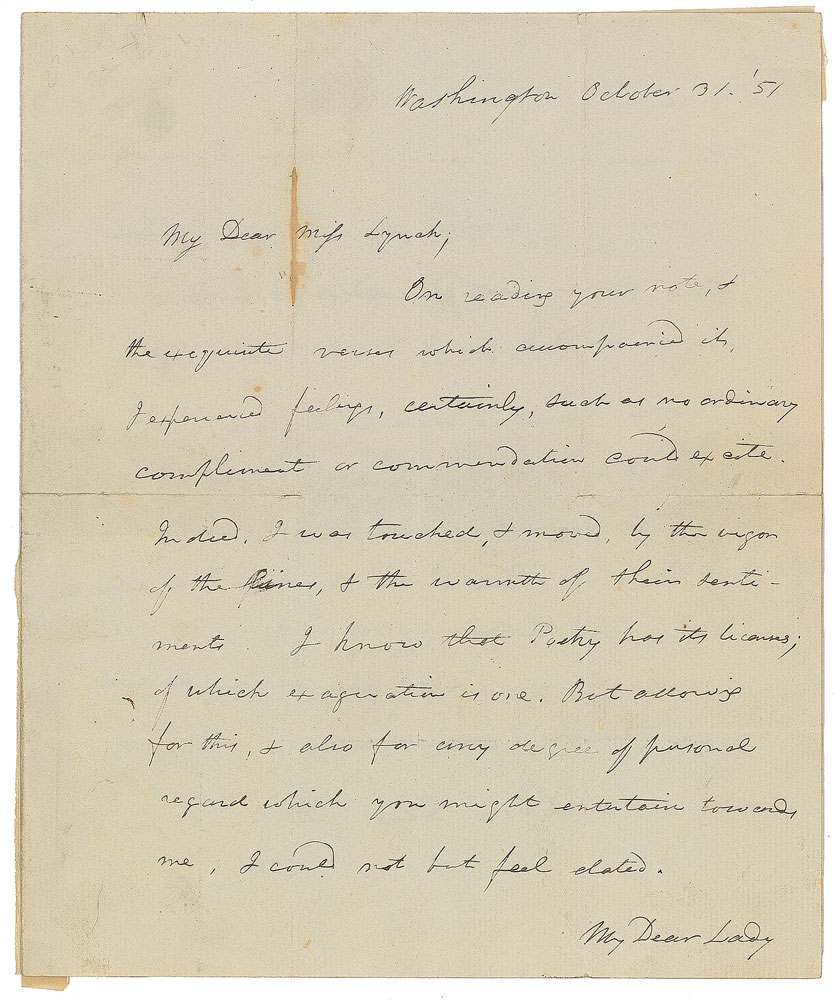 Washington October 31. '51
My Dear Miss Lynch;
On reading your note, &
the exquisite verses which accompanied it,
I experienced feelings, certainly, such as no ordinary
compliment or commendation could excite.
Indeed, I was touched, & moved, by the vigor
of the lines, & the warmth of their senti-
ments. I know that Poetry has its licenses;
of which exageration is one. But allowing
for this, & also for any degree of personal
regard which you might entertain towards
me, I could not but feel elated.
My Dear Lady